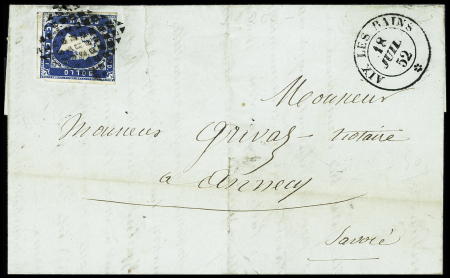 BOLLO
AIX LES BAINS
18
JUIL
52
Monsieur
Monsieur Grivaz notaire
a annecy
Savoie